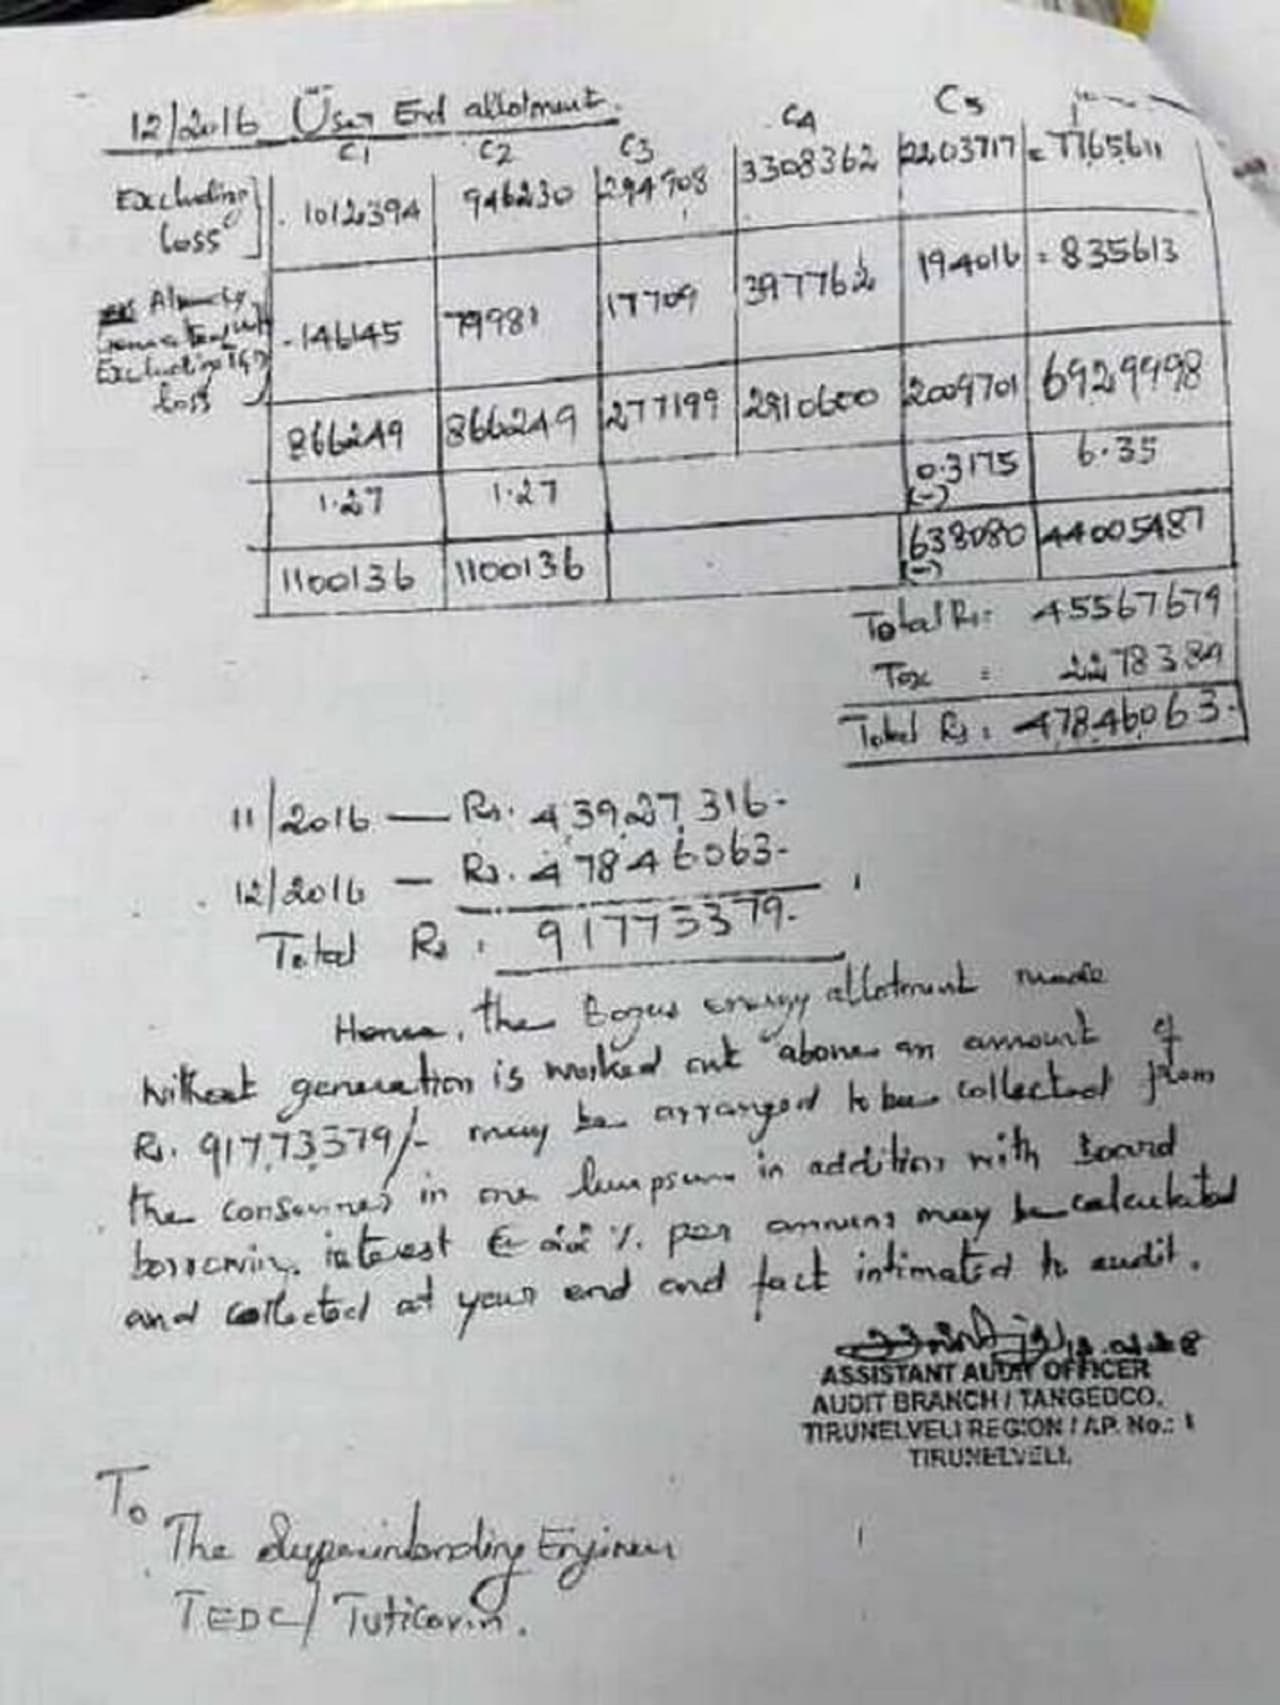 12/2016 User End allotment.
C1 C2 C3 C4 C5
Excluding loss . 1012394 946230 294908 3308362 2203717 = 7765611
Already Excluding loss - 146145 79981 17709 397762 194016 = 835613
866249 866249 277199 2910600 2009701 6929998
1.27 1.27 0.3175 (-) 6.35
1100136 1100136 638080 (-) 44005487
Total Rs = 45567679
Tax = 2278384
Total Rs : 47846063.
11/2016 — Rs. 43927316-
12/2016 — Rs. 47846063-
Total Rs : 91773379-
Hence, the Bogus energy allotment made
without generation is worked out above an amount of
Rs. 91773379/- may be arranged to be collected from
the consumer in one lumpsum in addition with Board
borrowing interest @ 22 % per annum may be calculated
and collected at your end and fact intimated to audit.
ASSISTANT AUDIT OFFICER
AUDIT BRANCH / TANGEDCO.
TIRUNELVELI REGION / AP. No.: 1
TIRUNELVELI.
To
The Superintending Engineer
TEDC/ Tuticorin.